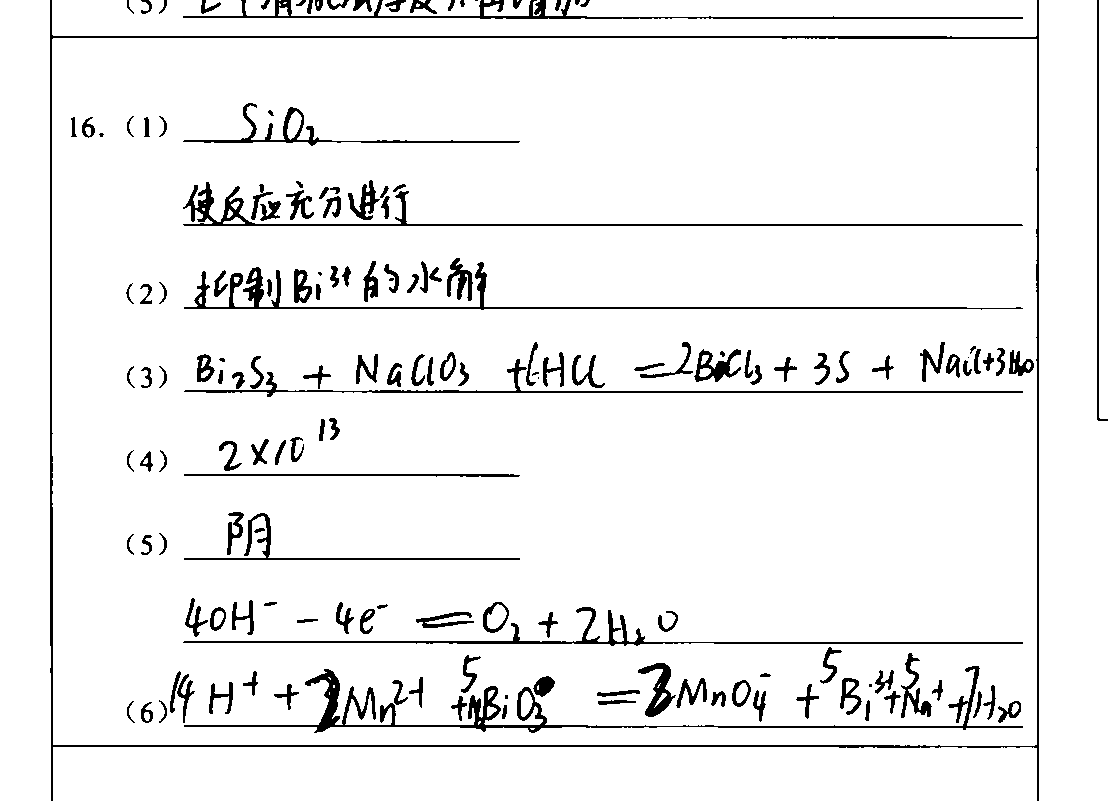 (5)
16. (1) SiO₂
使反应充分进行
(2) 抑制Bi³⁺的水解
(3) Bi₂S₃ + NaClO₃ + 6HCl = 2BiCl₃ + 3S + NaCl + 3H₂O
(4) 2×10¹³
(5) 阴
4OH⁻ - 4e⁻ = O₂ + 2H₂O
(6) 14H⁺ + 2Mn²⁺ + 5NaBiO₃ = 2MnO₄⁻ + 5Bi³⁺ + 5Na⁺ + 7H₂O